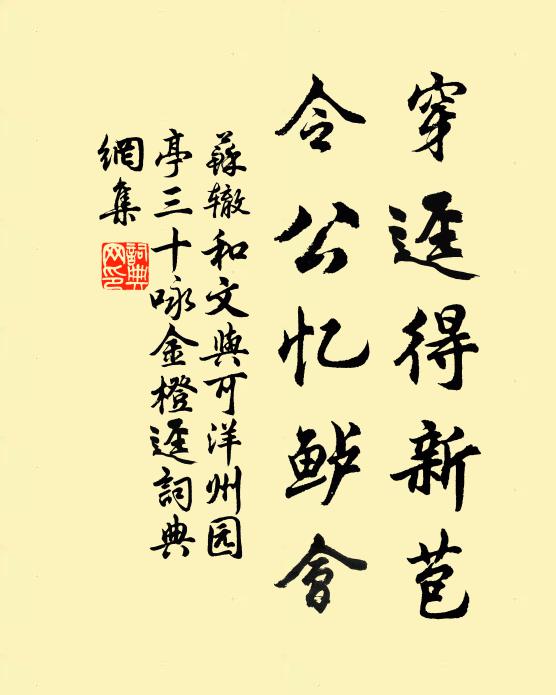 穿逕得新苞
令公忆鲈會
蘇辙和文與可洋州园
亭三十咏金橙逕詞典
網集
詞典網印